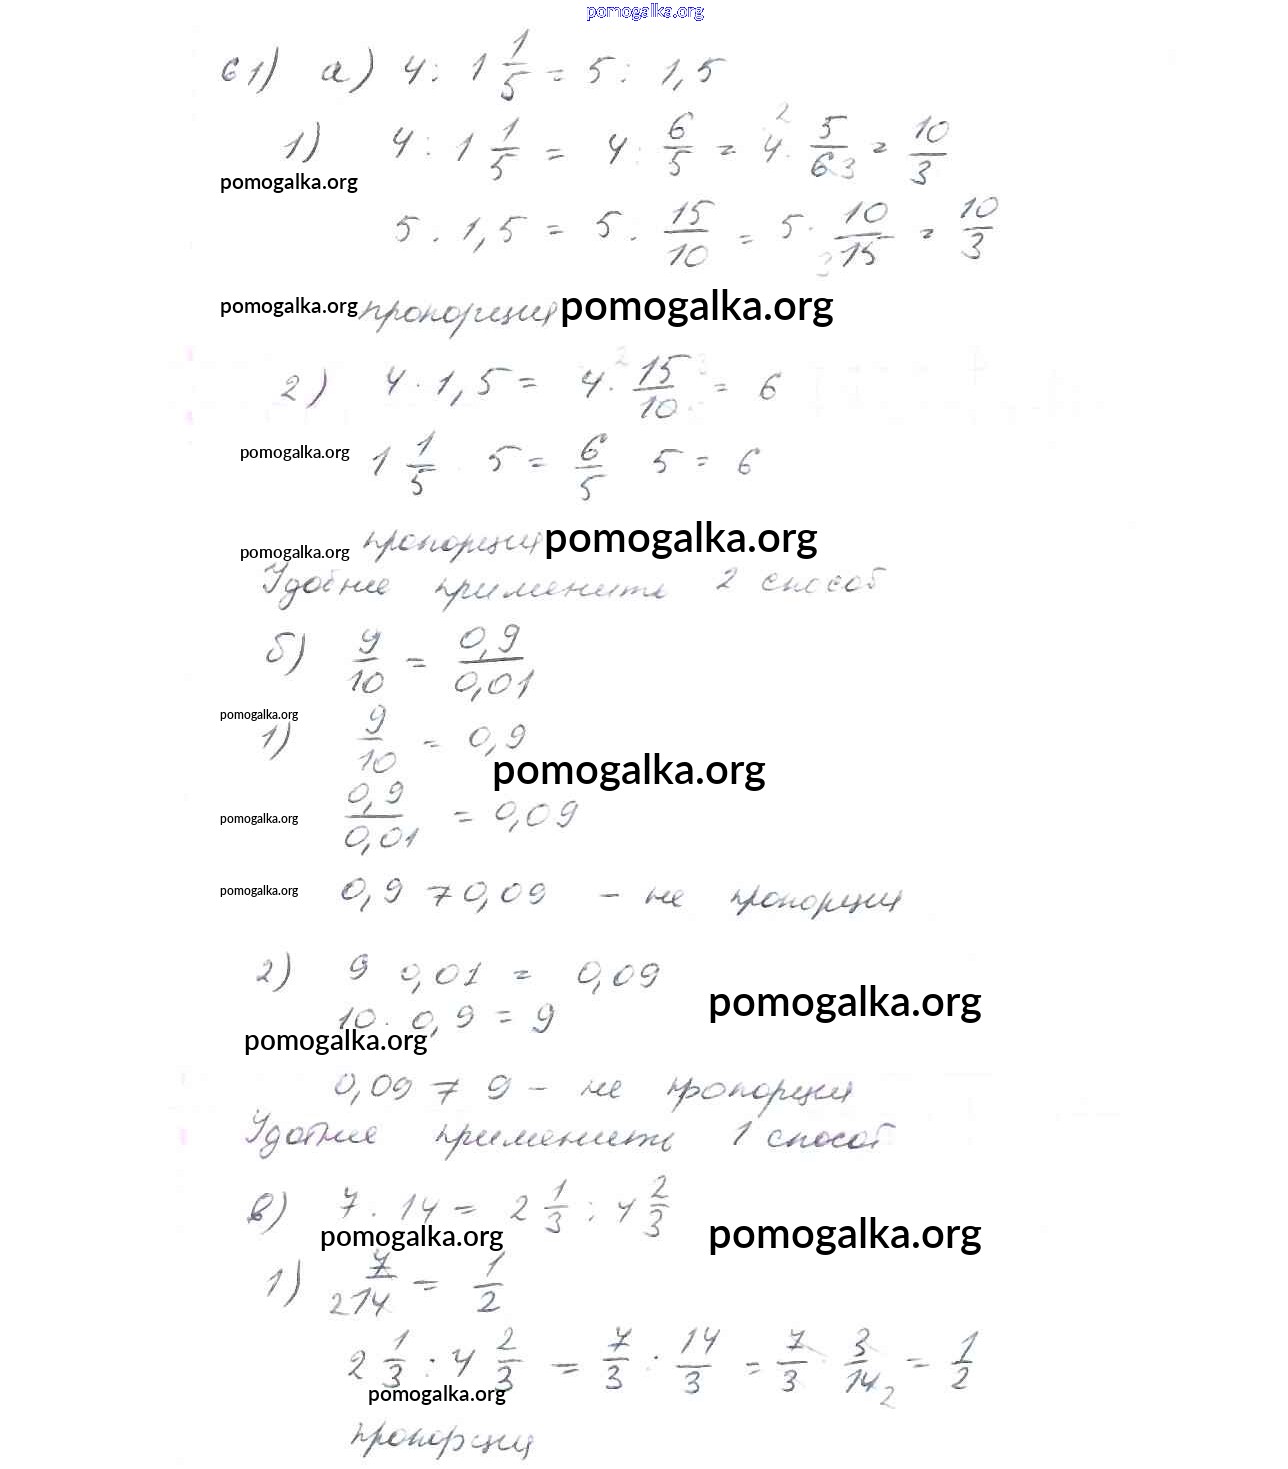 pomogalka.org
61) а) 4 : 1 1/5 = 5 : 1,5
1) 4 : 1 1/5 = 4 : 6/5 = 4 · 5/6 = 10/3
pomogalka.org
5 : 1,5 = 5 : 15/10 = 5 · 10/15 = 10/3
pomogalka.org пропорция pomogalka.org
2) 4 · 1,5 = 4 · 15/10 = 6
pomogalka.org 1 1/5 · 5 = 6/5 5 = 6
pomogalka.org пропорция pomogalka.org
Удобнее применить 2 способ
б) 9/10 = 0,9/0,01
pomogalka.org
1) 9/10 = 0,9
pomogalka.org
pomogalka.org 0,9/0,01 = 0,09
pomogalka.org 0,9 ≠ 0,09 – не пропорция
2) 9 0,01 = 0,09
pomogalka.org
10 · 0,9 = 9
pomogalka.org
0,09 ≠ 9 – не пропорция
Удобнее применить 1 способ
в) 7 : 14 = 2 1/3 : 4 2/3
pomogalka.org pomogalka.org
1) 7/14 = 1/2
2 1/3 : 4 2/3 = 7/3 : 14/3 = 7/3 · 3/14 = 1/2
pomogalka.org
пропорция